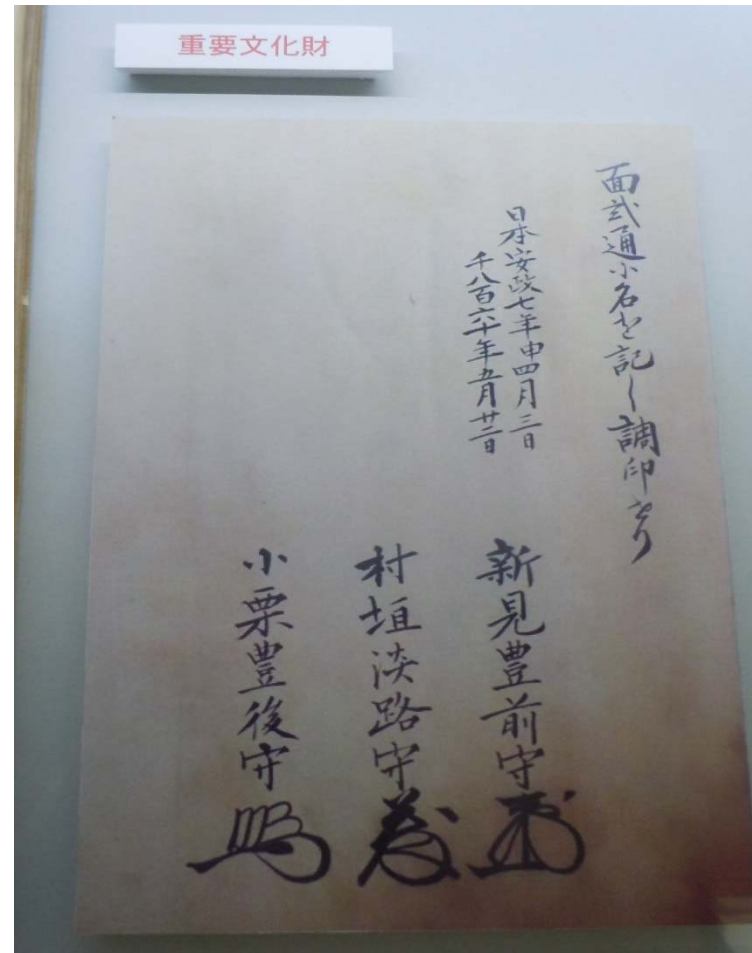 重要文化財
面弐通小名を記し調印せり
日本安政七年申四月三日
千八百六十年五月廿二日
新見豊前守
村垣淡路守
小栗豊後守